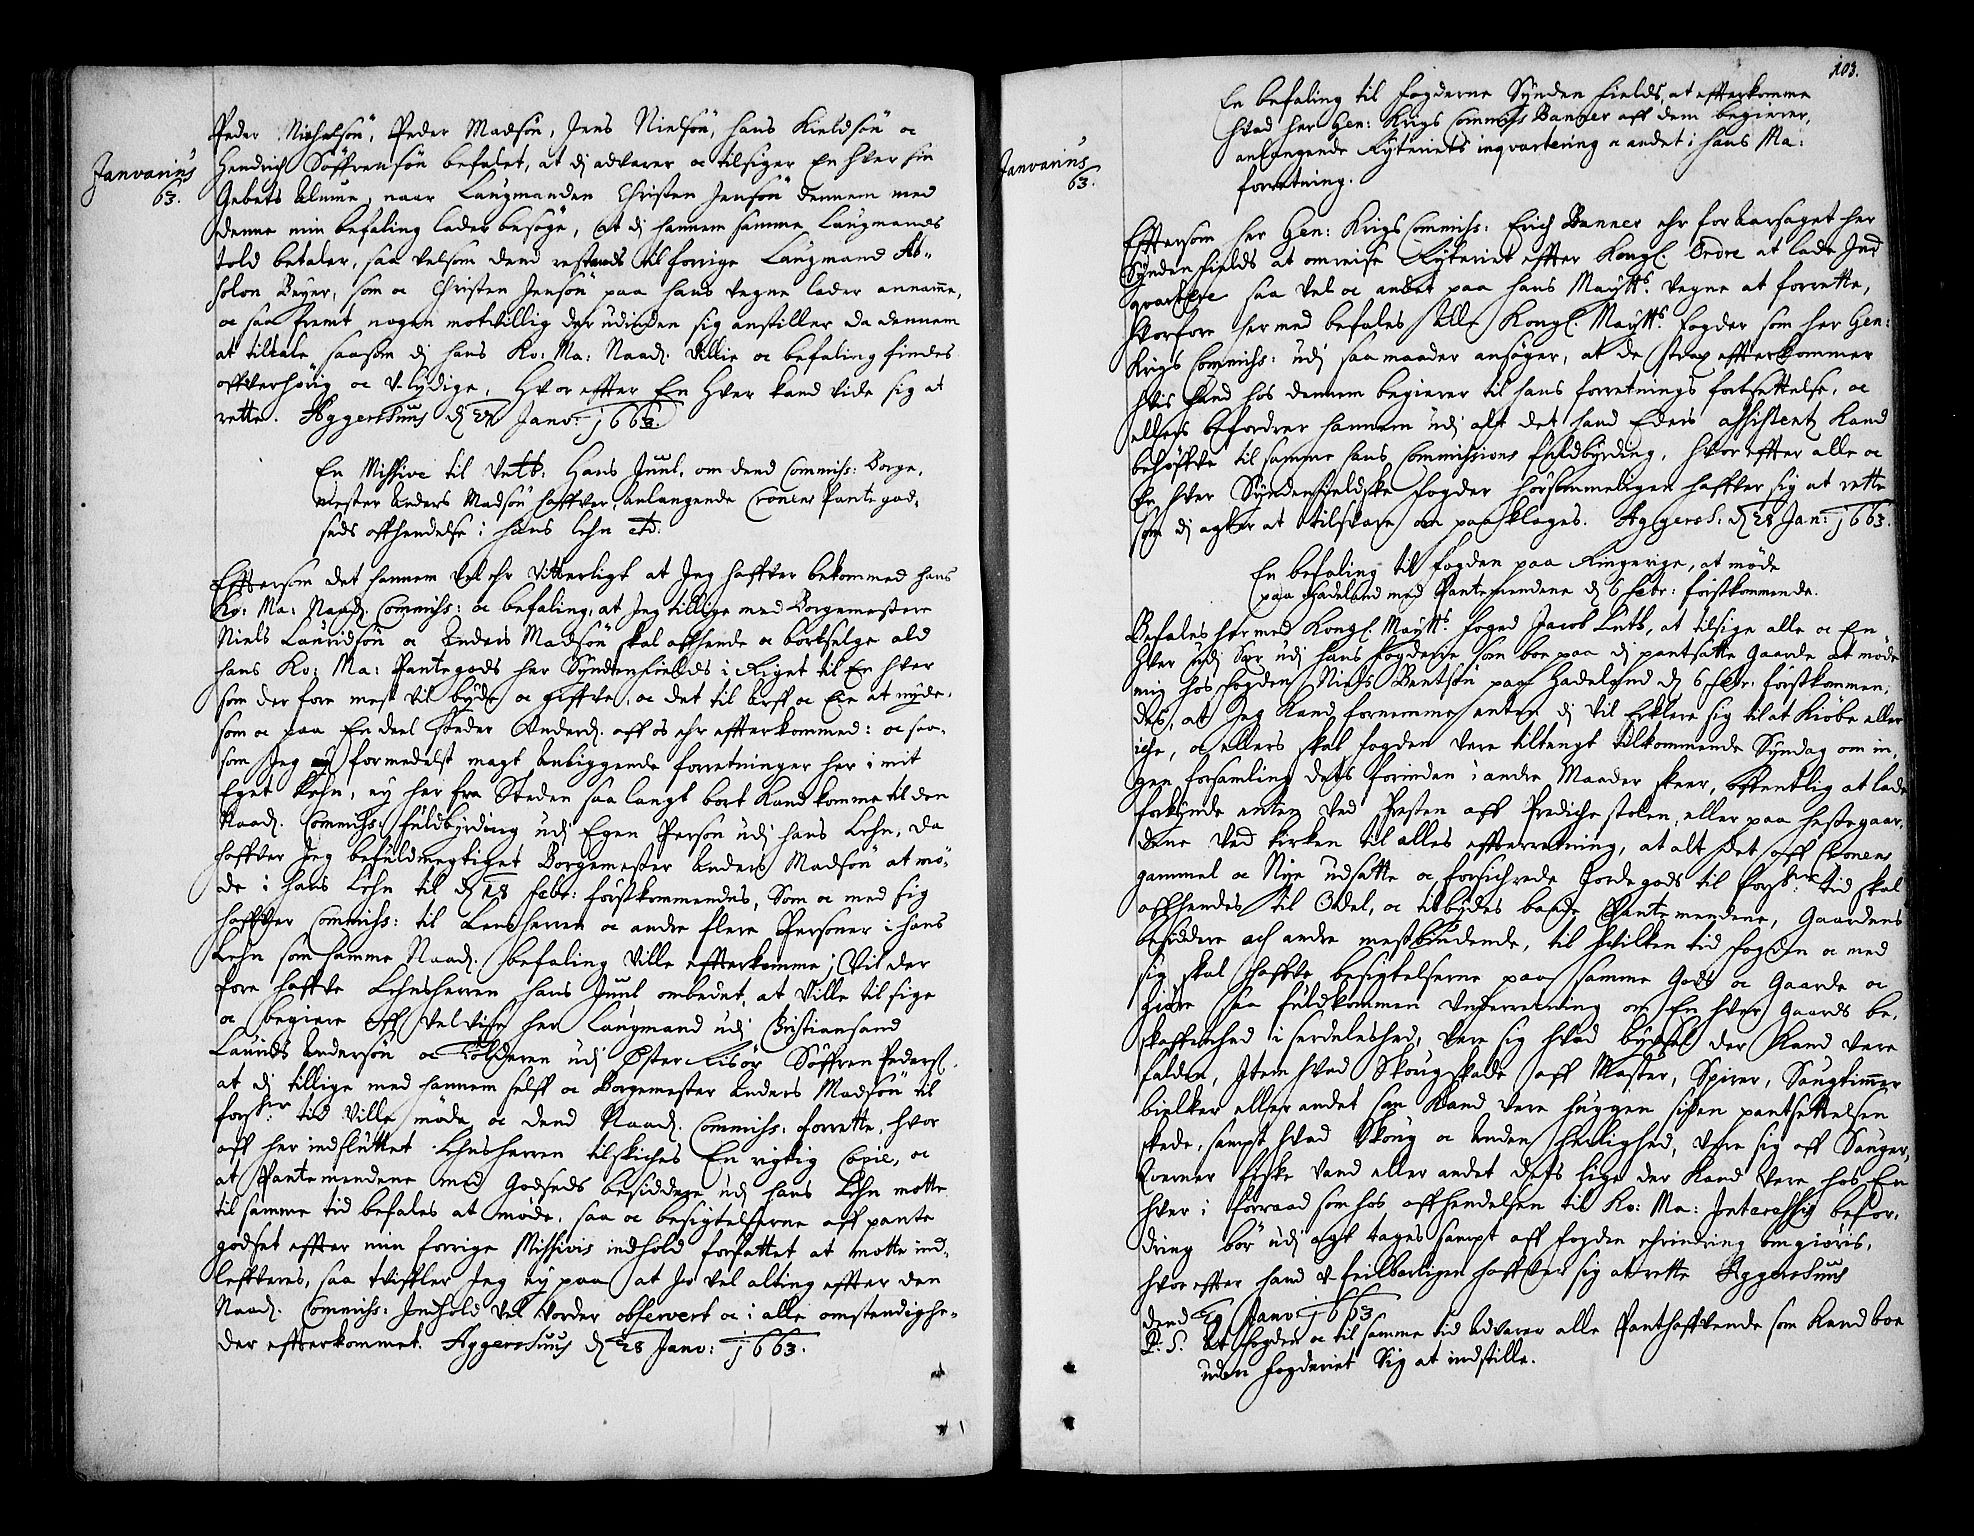 Janvarius
63.
Peder Michelsön, Peder Madsön, Jens Nielsön, Hans Kieldsön oc
Hendrich Söffrensön befalet, at di advarer oc tilsiger En hver sin
Gebets Almue, naar Laugmanden Christen Jensön dennem med
denne min befaling lader besöge, at di hannem samme Laugmands
told betaler, saa velsom dend resterende til forrige Laugmand Ab-
solon Beyer, som oc Christen Jensön paa hans vegne lader annamme,
oc saa fremt nogen motvillig der udinden sig anstiller da dennem
at tiltale saasom di hans Ko: Ma: Naad: Villie oc befaling findes
offverhörig oc v-lydige, Hvor effter En Hver kand vide sig at
rette. Aggershuus d 27 Janv: 1663.
En Missive til Velb: Hans Juul, om dend Commiss: Borge-
mester Anders Madsön haffver, anlangende Cronens Pantegod-
seds affhendelse i hans Lehn etc.
Effttersom det hannem vel ehr vitterligt at Jeg haffver bekommed hans
Ko: Ma: Naad: Commiss: oc befaling, at Jeg tillige med Borgemestere
Niels Lauridsön oc Anders Madsön skal affhende oc bortselge ald
hans Ko: Ma: Pantegods her Syndenfields i Riget til En hver
som der fore mest vil byde oc giffve, oc det til Arff oc Eie at nyde,
som oc paa En deel steder Anderd: aff os ehr effterkommed: oc saa-
som Jeg formedelst magt anliggende forretninger her i mit
Eget Lehn, ey her fra Steden saa langt bort kand komme til den
Naad: Commiss: fuldbyrding udj Egen Person udj hans Lehn, da
haffver Jeg befuldmegtiget Borgemester Anders Madsön at mö-
de i hans Lehn til d 18 Febr: förstkommendes, som oc med sig
haffver Commiss: til Lensherren oc andre flere Personer i hans
Lehn som samme Naad: befaling ville effterkomme; Vil der
fore haffve Lehnsherren Hans Juul ombedet, at ville til sige
oc begiere Aff velvise her Laugmand udj Christiansand
Laurids Andersön oc Tolderen udj Öster Risör Söffren Peders:
at di tillige med hannem selff oc Borgemester Anders Madsön til
forsk.ne tid ville möde oc dend Naad: Commiss: forrette, hvor
aff her indsluttet Lehnsherren tilskickes En rigtig Copie, oc
at Pantemendene med Godseds besiddere udj hans Lehn motte
til samme tid befales at möde, saa oc besigtelserne aff pante
godset effter min forrige Missivis indhold forfattet at motte ind-
leffveres, saa tviffler Jeg ey paa at Jo vel alting effter den
Naad: Commiss: Indhold vel vorder observert oc i alle omstendighe-
der effterkommet. Aggershuus d 28 Janv: 1663.
103.
Janvarius
63.
En befaling til fogderne Synden fields, at effterkomme
hvad her Gen: Krigs Commiss Banner aff dem begierer,
anlangende Ryteriets inqvartering oc andet i hans Ma:
forretning.
Effttersom her Gen: Krigs Commiss: Erich Banner ehr forbarsaget her
Synden fields at omreise Ryteriet effter Kongl. Ordre at lade Ind
qvartere saa vel oc andet paa hans Maytts. vegne at forrette,
Hvorfore her med befales Alle Kongl. Maytts. fogder som her Gen:
Krigs Commiss: udj saa maader ansöger, at de strax effterkommer
hvis hand hos dennem begierer til hans forretnings fortsettelse, oc
ellers befordrer hannem udj alt det hand Eders assistentz kand
behöffve til samme hans Commissions fuldbyrding, hvor effter alle oc
En hver Syndenfieldske fogder hörsommeligen haffver sig at rette
som di agter at tilsvare om paaklages. Aggersh: d 28 Jan: 1663.
En befaling til fogden paa Ringerige, at möde
paa Hadeland med Pantemendene d 6 Febr: förstkommende.
Befales her med Kongl. Maytts. foged Jacob Luth, at tilsige alle oc En
hver udj Sær udj hans fogderie som boe paa di pantsatte Gaarde at möde
mig hos fogden Niels Bentsön paa Hadeland d 6 Febr: förstkommen-
des, at Jeg kand fornemme enten di vil Erklere sig til at kiöbe eller
icke, oc ellers skal fogden vere tiltengt tilkommende Syndag om in-
gen forsamling dets forinden i andre Maader skeer, offentlig at lade
forkynde enten ved Presten aff Prediche stolen, eller paa hestegaar-
dene ved kirken til alles effterretning, at alt det aff Cronens
gammel oc Nye udsatte oc forsichrede Jordegods til forsk.ne tid skal
affhendes til Odel, oc tilbydes baade Pantemendene, Gaardens
besiddere och andre mestbiudende, til hvilken tid fogden oc med
sig skal haffve besigtelserne paa samme Gods oc Gaarde oc
giöre saa fuldkommen underretning om En hver Gaards be-
skaffenhed i serdeleshed, vere sig hvad bygsel der kand vere
falden, Item hvad Skougskade aff Master, Spirer, Saugtimmer
bielker eller andet som kand vere huggen siden pantsettelsen
skede, sampt hvad Skoug oc Anden Herlighed, vere sig aff Sauger,
Qverner fiske vand eller andet dets lige der kand vere hos En
hver i forraad som hos affhendelsen til Ko: Ma: Interesses befor-
dring bör udj agt tages sampt aff fogden ehrindring omgiöris,
hvor effter hand v-feilbarligen haffver sig at rette Aggershuus
dend 29 Janv: 1663
P. S. At fogden oc til samme tid advarer alle Panthaffvende som kand boe
uden fogderiet Sig at indstille.